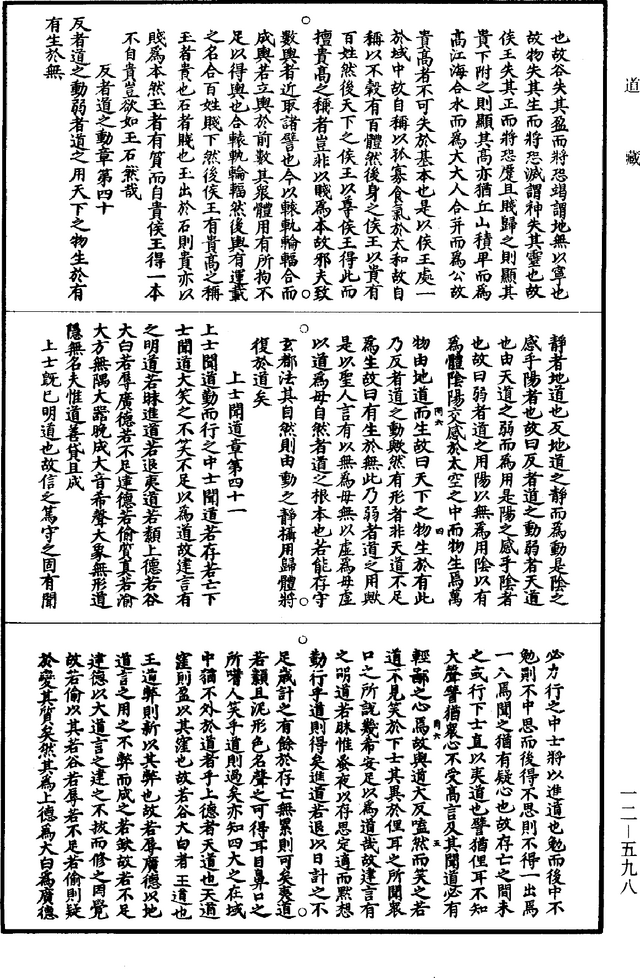 道藏
也故谷失其盈而將恐竭謂地無以寧也
故物失其生而將恐滅謂神失其靈也故
侯王失其正而將恐蹷且賤歸之則顯其
貴下附之則顯其高亦猶丘山積卑而為
高江海合水而為大大人合并而為公故
貴高者不可失於基本也是以侯王處一
於域中故自稱以孤寡食氣於太和故自
稱以不穀有百體然後身之侯王以貴有
百姓然後天下之侯王以尊侯王得此而
擅貴高之稱者豈非以賤為本故邪夫致
數輿者近取諸譬也今以轅軌輪輻合而
成輿若立輿於前數其衆體用有所拘不
足以得輿也合轅軌輪輻然後輿有運載
之名合百姓賤下然後侯王有貴高之稱
玉者貴也石者賤也玉出於石則貴亦以
賤為本然玉者有質而自貴侯王得一本
不自貴豈欲如玉石然哉
反者道之動章第四十
反者道之動弱者道之用天下之物生於有
有生於無
靜者地道也反地道之靜而為動是陰之
感乎陽者也故曰反者道之動弱者天道
也由天道之弱而為用是陽之感乎陰者
也故曰弱者道之用陽以無為用陰以有
為體陰陽交感於太空之中而物生焉萬
物由地道而生故曰天下之物生於有此
乃反者道之動歟然有形者非天道不足
為生故曰有生於無此乃弱者道之用歟
是以聖人言有以無為母無以虛為母虛
以道為母自然者道之根本也若能存守
玄都法其自然則由動之靜攝用歸體將
復於道矣
上士聞道章第四十一
上士聞道勤而行之中士聞道若存若亡下
士聞道大笑之不笑不足以為道故建言有
之明道若昧進道若退夷道若纇上德若谷
大白若辱廣德若不足建德若偷質真若渝
大方無隅大器晚成大音希聲大象無形道
隱無名夫惟道善貸且成
上士既已明道也故信之篤守之固有聞
必力行之中士將以進道也勉而後中不
勉則不中思而後得不思則不得一出焉
一入焉聞之猶有疑心也故存亡之間未
之或行下士直以夷道也譬猶俚耳不知
大聲譬猶衆心不受高言及其聞道必有
輕鄙之心焉故與道大反嗑然而笑之若
道不見笑於下士其異於俚耳之所聞衆
口之所說幾希安足以為道哉故建言有
之明道若昧惟槖夜以存思定適而默想
勤行乎道則得矣進道若退以日計之不
足歲計之有餘於存亡無累則可矣夷道
若纇且泥形色名聲之可得耳目鼻口之
所嗜人笑乎道則過矣亦知四大之在域
中猶不外於道者乎上德者天道也天道
窪則盈以其窪也故若谷大白者王道也
王道弊則新以其弊也故若辱廣德以地
道言之用之不弊而成之若缺故若不足
建德以大道言之建之不拔而修之罔覺
故若偷以其若谷若辱若不足若偷則疑
於變其質矣然其為上德為大白為廣德
一二—五九八